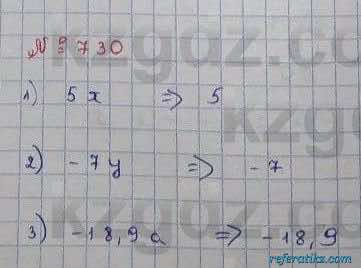 № 730
1) 5x ⇒ 5
2) -7y ⇒ -7
3) -18,9a ⇒ -18,9
kzgoz.com
referatikz.com